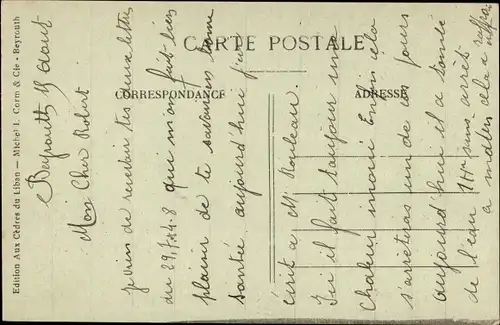 CARTE POSTALE
CORRESPONDANCE
ADRESSE
Edition Aux Cèdres du Liban - Michel I. Corm & Cie - Beyrouth
Beyrouth 11 Aout
Mon Cher Robert
je viens de recevoir tes deux lettres
du 29, 7 et 4-8 qui m'on fait bien
plaisir de te savoir en bonne
santée aujourd'hui j'ai
écrit a M. Rouleau.
Ici il fait toujour une
Chaleur inoui Enfin cela
s'arrêteras un de ces jours
aujourd'hui il a tombé
de l'eau 1 Hre sans arrêt
a midi cela a